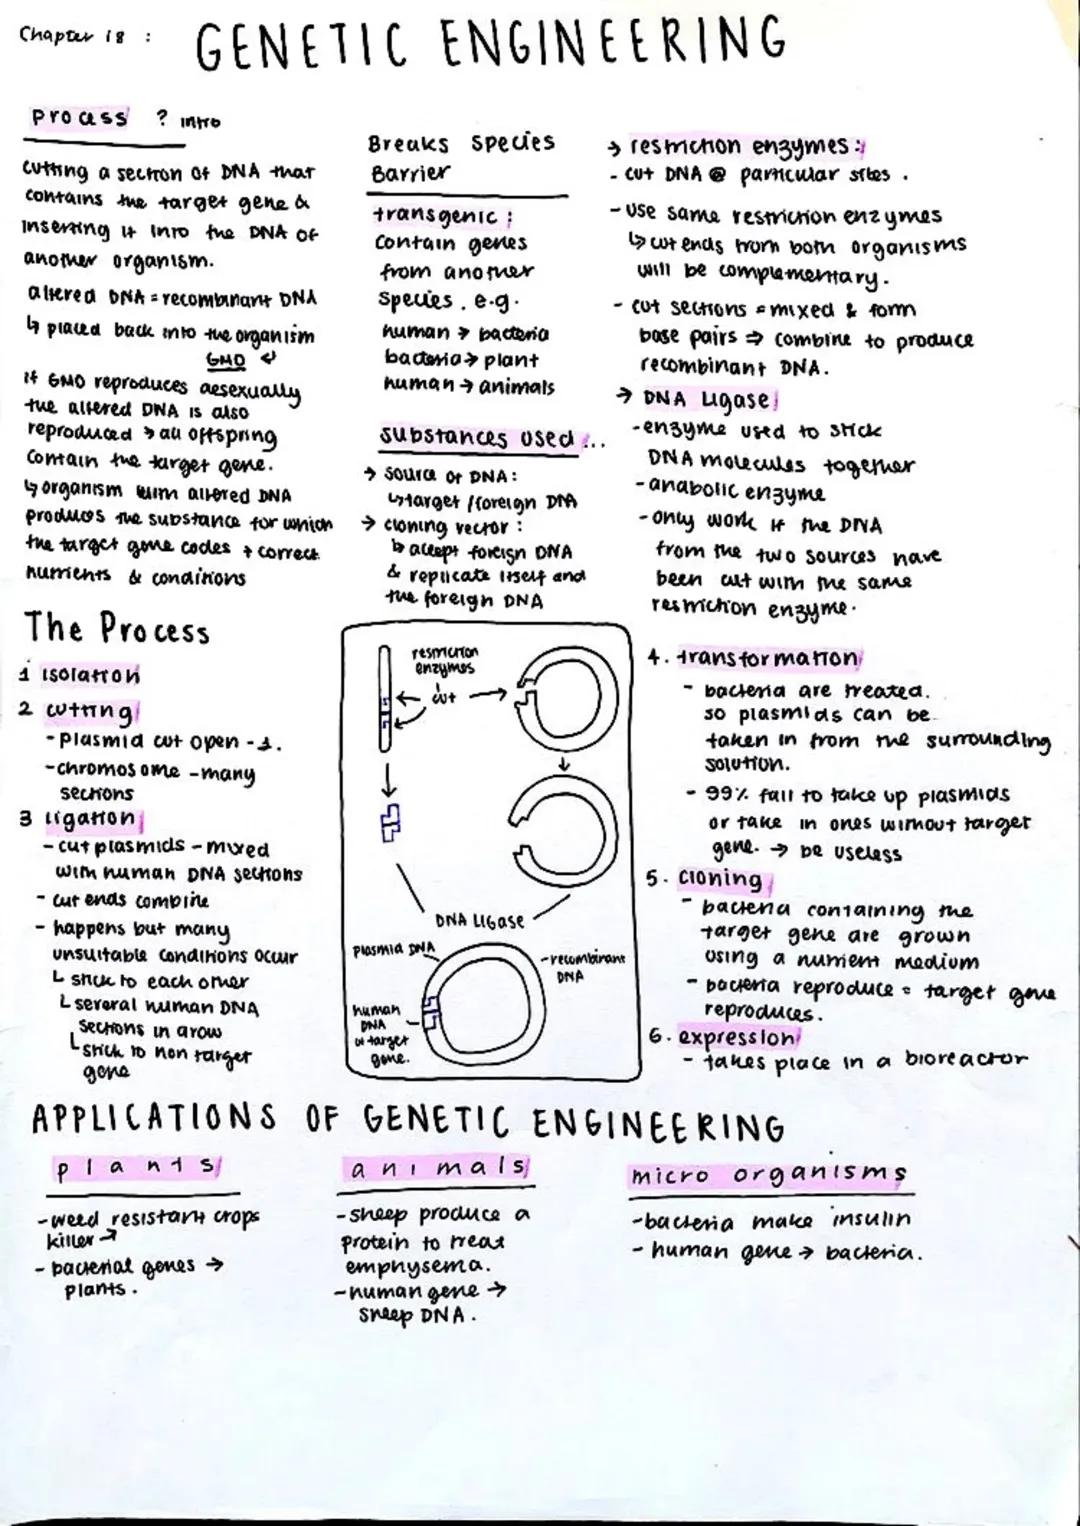 Chapter 18 :
GENETIC ENGINEERING
process ? intro
cutting a section of DNA that
contains the target gene &
inserting it into the DNA of
another organism.
altered DNA = recombinant DNA
↳ placed back into the organism
GMO ↲
if GMO reproduces aesexually
the altered DNA is also
reproduced → all offspring
contain the target gene.
↳ organism with altered DNA
produces the substance for which
the target gene codes + correct
nutrients & conditions
Breaks Species
Barrier
transgenic :
contain genes
from another
species. e.g.
human → bacteria
bacteria → plant
human → animals
substances used :..
→ source of DNA :
↳ target / foreign DNA
→ cloning vector :
↳ accept foreign DNA
& replicate itself and
the foreign DNA
→ restriction enzymes :
- cut DNA @ particular sites .
- use same restriction enzymes
↳ cut ends from both organisms
will be complementary.
- cut sections = mixed & form
base pairs ⇒ combine to produce
recombinant DNA.
→ DNA Ligase
- enzyme used to stick
DNA molecules together
- anabolic enzyme
- only work if the DNA
from the two sources have
been cut with the same
restriction enzyme.
The Process
1 isolation
2 cutting
- plasmid cut open - 1.
- chromosome - many
sections
3 ligation
- cut plasmids - mixed
with human DNA sections
- cut ends combine
- happens but many
unsuitable conditions occur
↳ stick to each other
↳ several human DNA
sections in a row
↳ stick to non target
gene
restriction
enzymes
cut
DNA Ligase
plasmid DNA
- recombinant
DNA
human
DNA
w target
gene.
4. transformation
- bacteria are treated.
so plasmids can be
taken in from the surrounding
solution.
- 99% fail to take up plasmids
or take in ones without target
gene. → be useless
5. cloning
- bacteria containing the
target gene are grown
using a nutrient medium
- bacteria reproduce = target gene
reproduces.
6. expression
- takes place in a bioreactor
APPLICATIONS OF GENETIC ENGINEERING
plants
- weed resistant crops
killer
- bacterial genes →
plants.
animals
- sheep produce a
protein to treat
emphysema.
- human gene →
sheep DNA.
micro organisms
- bacteria make insulin
- human gene → bacteria.